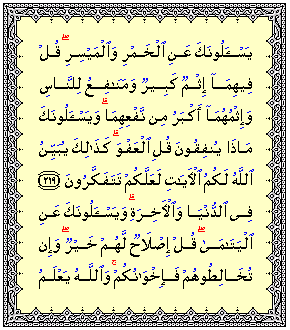 يَسْـَٔلُونَكَ عَنِ ٱلْخَمْرِ وَٱلْمَيْسِرِ ۖ قُلْ
فِيهِمَآ إِثْمٌ كَبِيرٌ وَمَنَـٰفِعُ لِلنَّاسِ
وَإِثْمُهُمَآ أَكْبَرُ مِن نَّفْعِهِمَا ۗ وَيَسْـَٔلُونَكَ
مَاذَا يُنفِقُونَ قُلِ ٱلْعَفْوَ ۗ كَذَٰلِكَ يُبَيِّنُ
ٱللَّهُ لَكُمُ ٱلْـَٔايَـٰتِ لَعَلَّكُمْ تَتَفَكَّرُونَ ﴿٢١٩﴾
فِى ٱلدُّنْيَا وَٱلْـَٔاخِرَةِ ۗ وَيَسْـَٔلُونَكَ عَنِ
ٱلْيَتَـٰمَىٰ ۖ قُلْ إِصْلَاحٌ لَّهُمْ خَيْرٌ ۖ وَإِن
تُخَالِطُوهُمْ فَإِخْوَٰنُكُمْ ۚ وَٱللَّهُ يَعْلَمُ